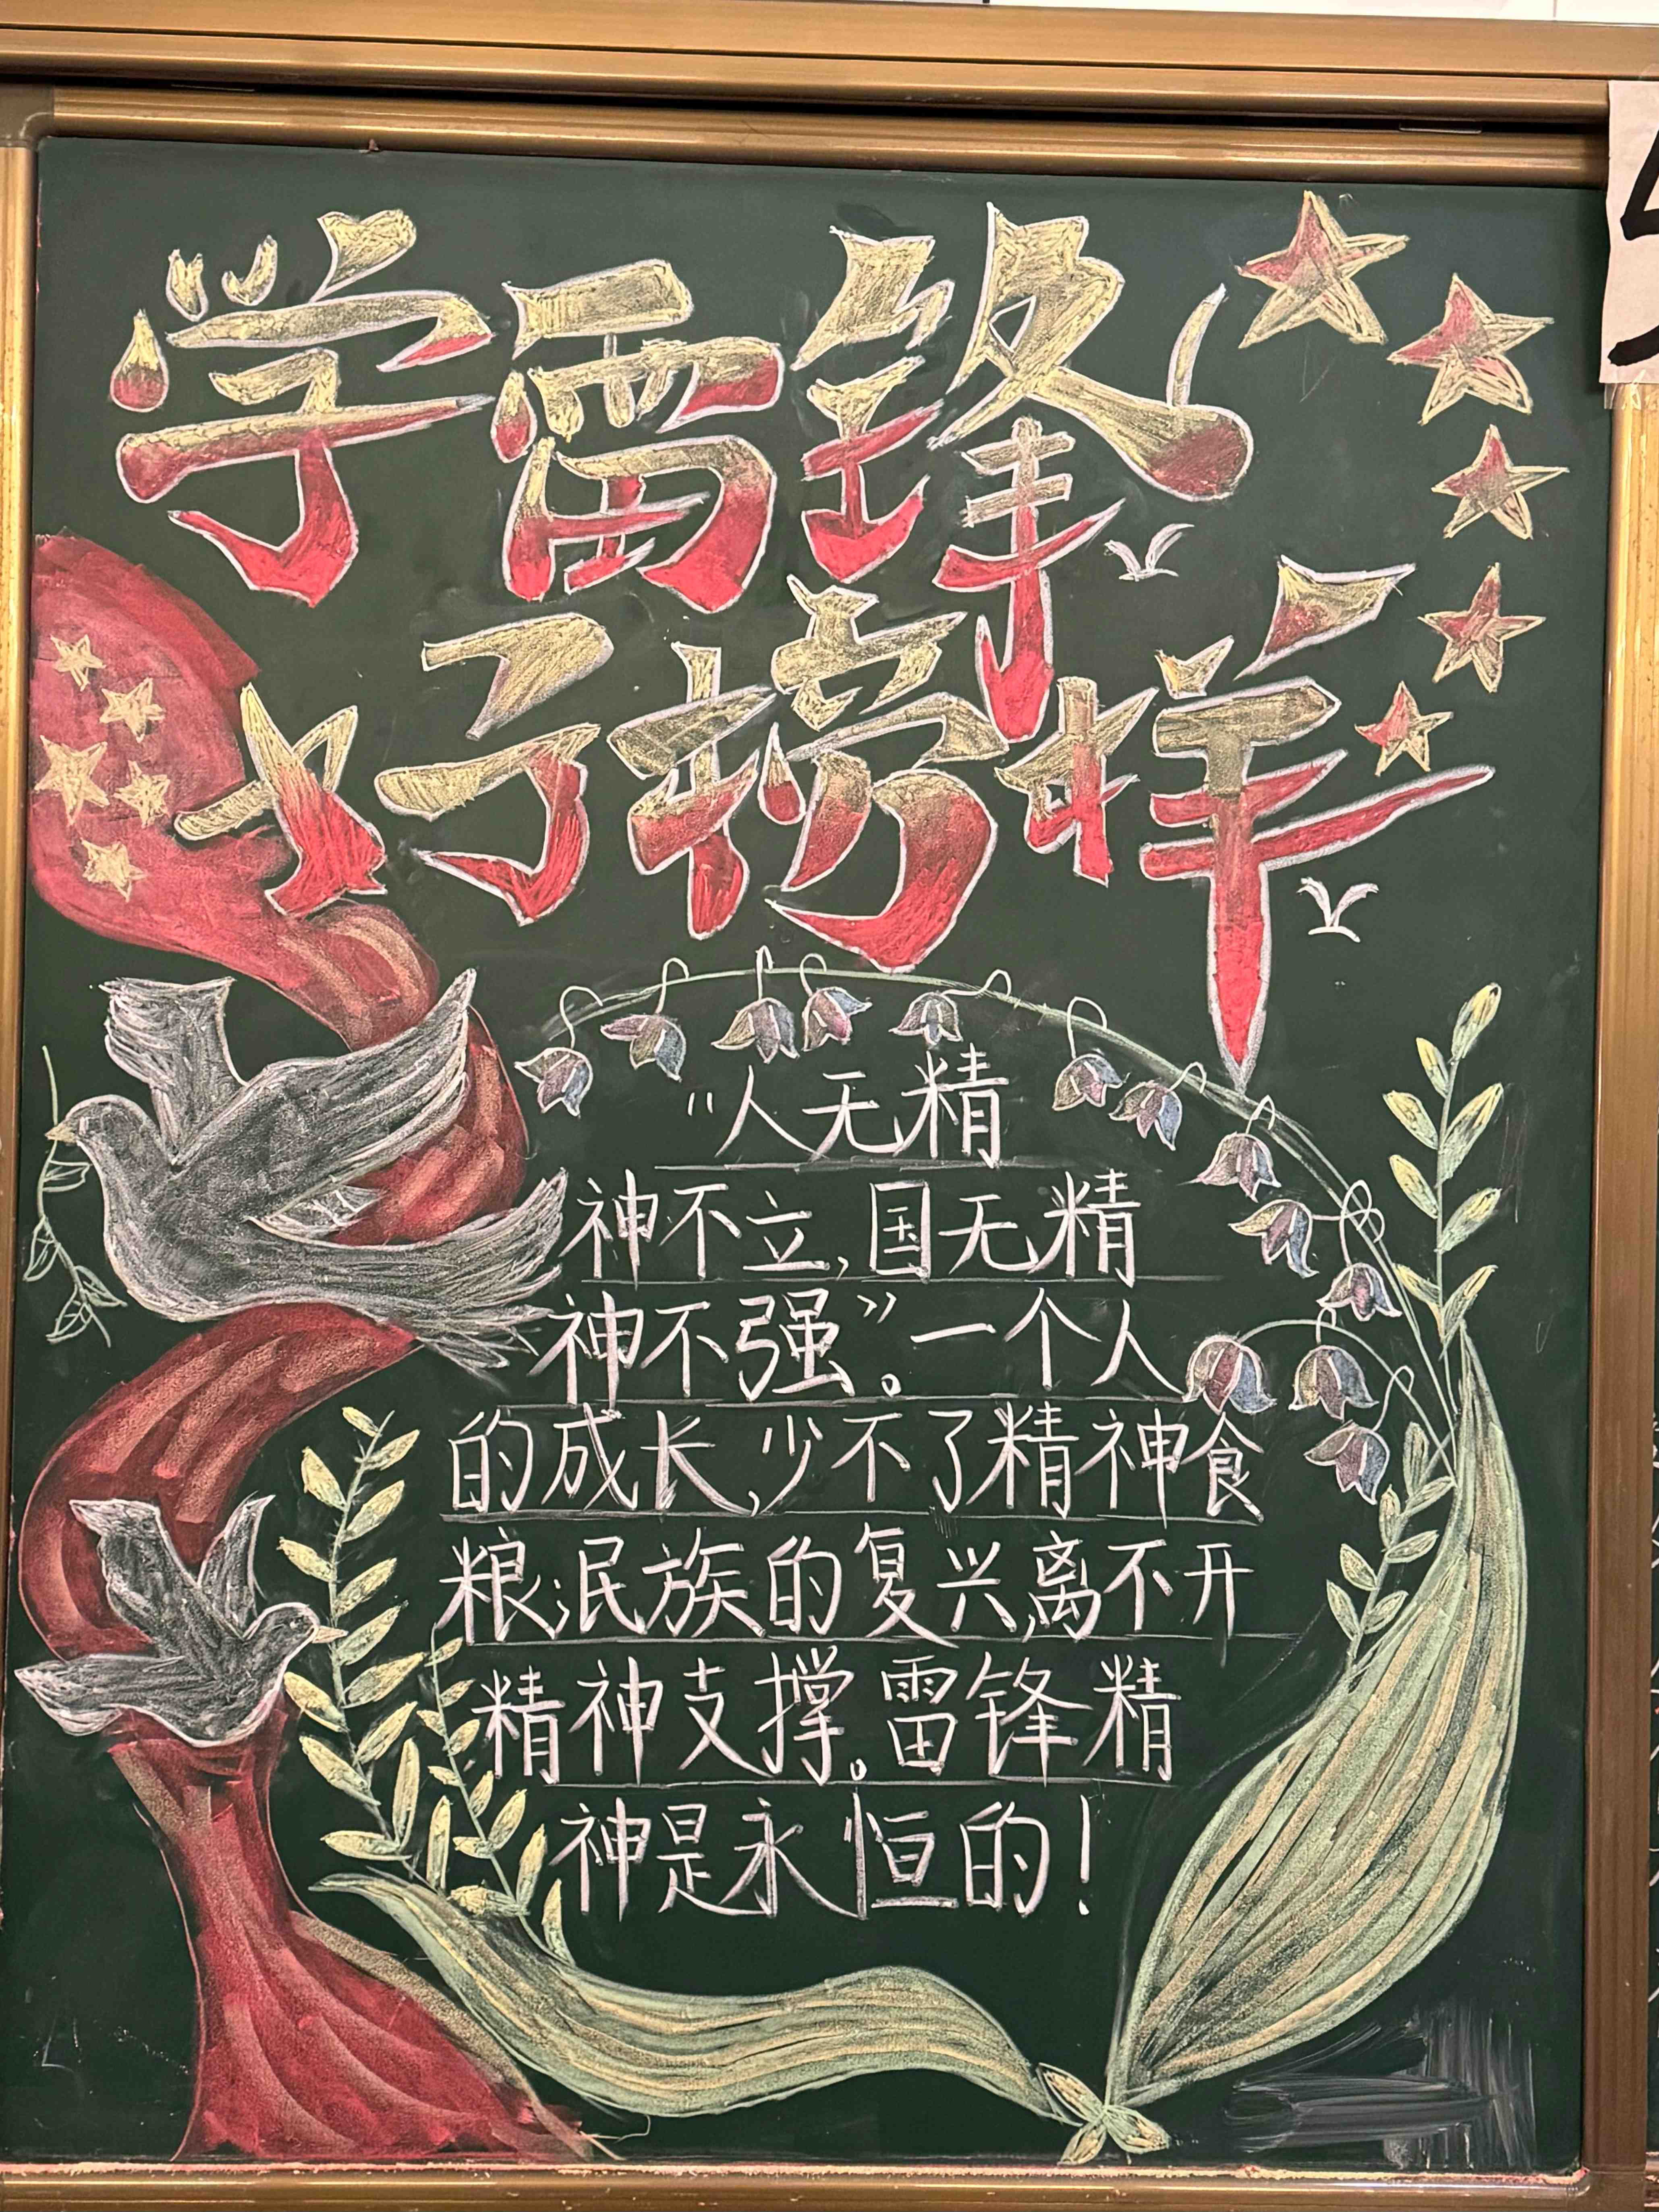 学雷锋
好榜样
"人无精
神不立,国无精
神不强"。一个人
的成长,少不了精神食
粮;民族的复兴,离不开
精神支撑。雷锋精
神是永恒的!